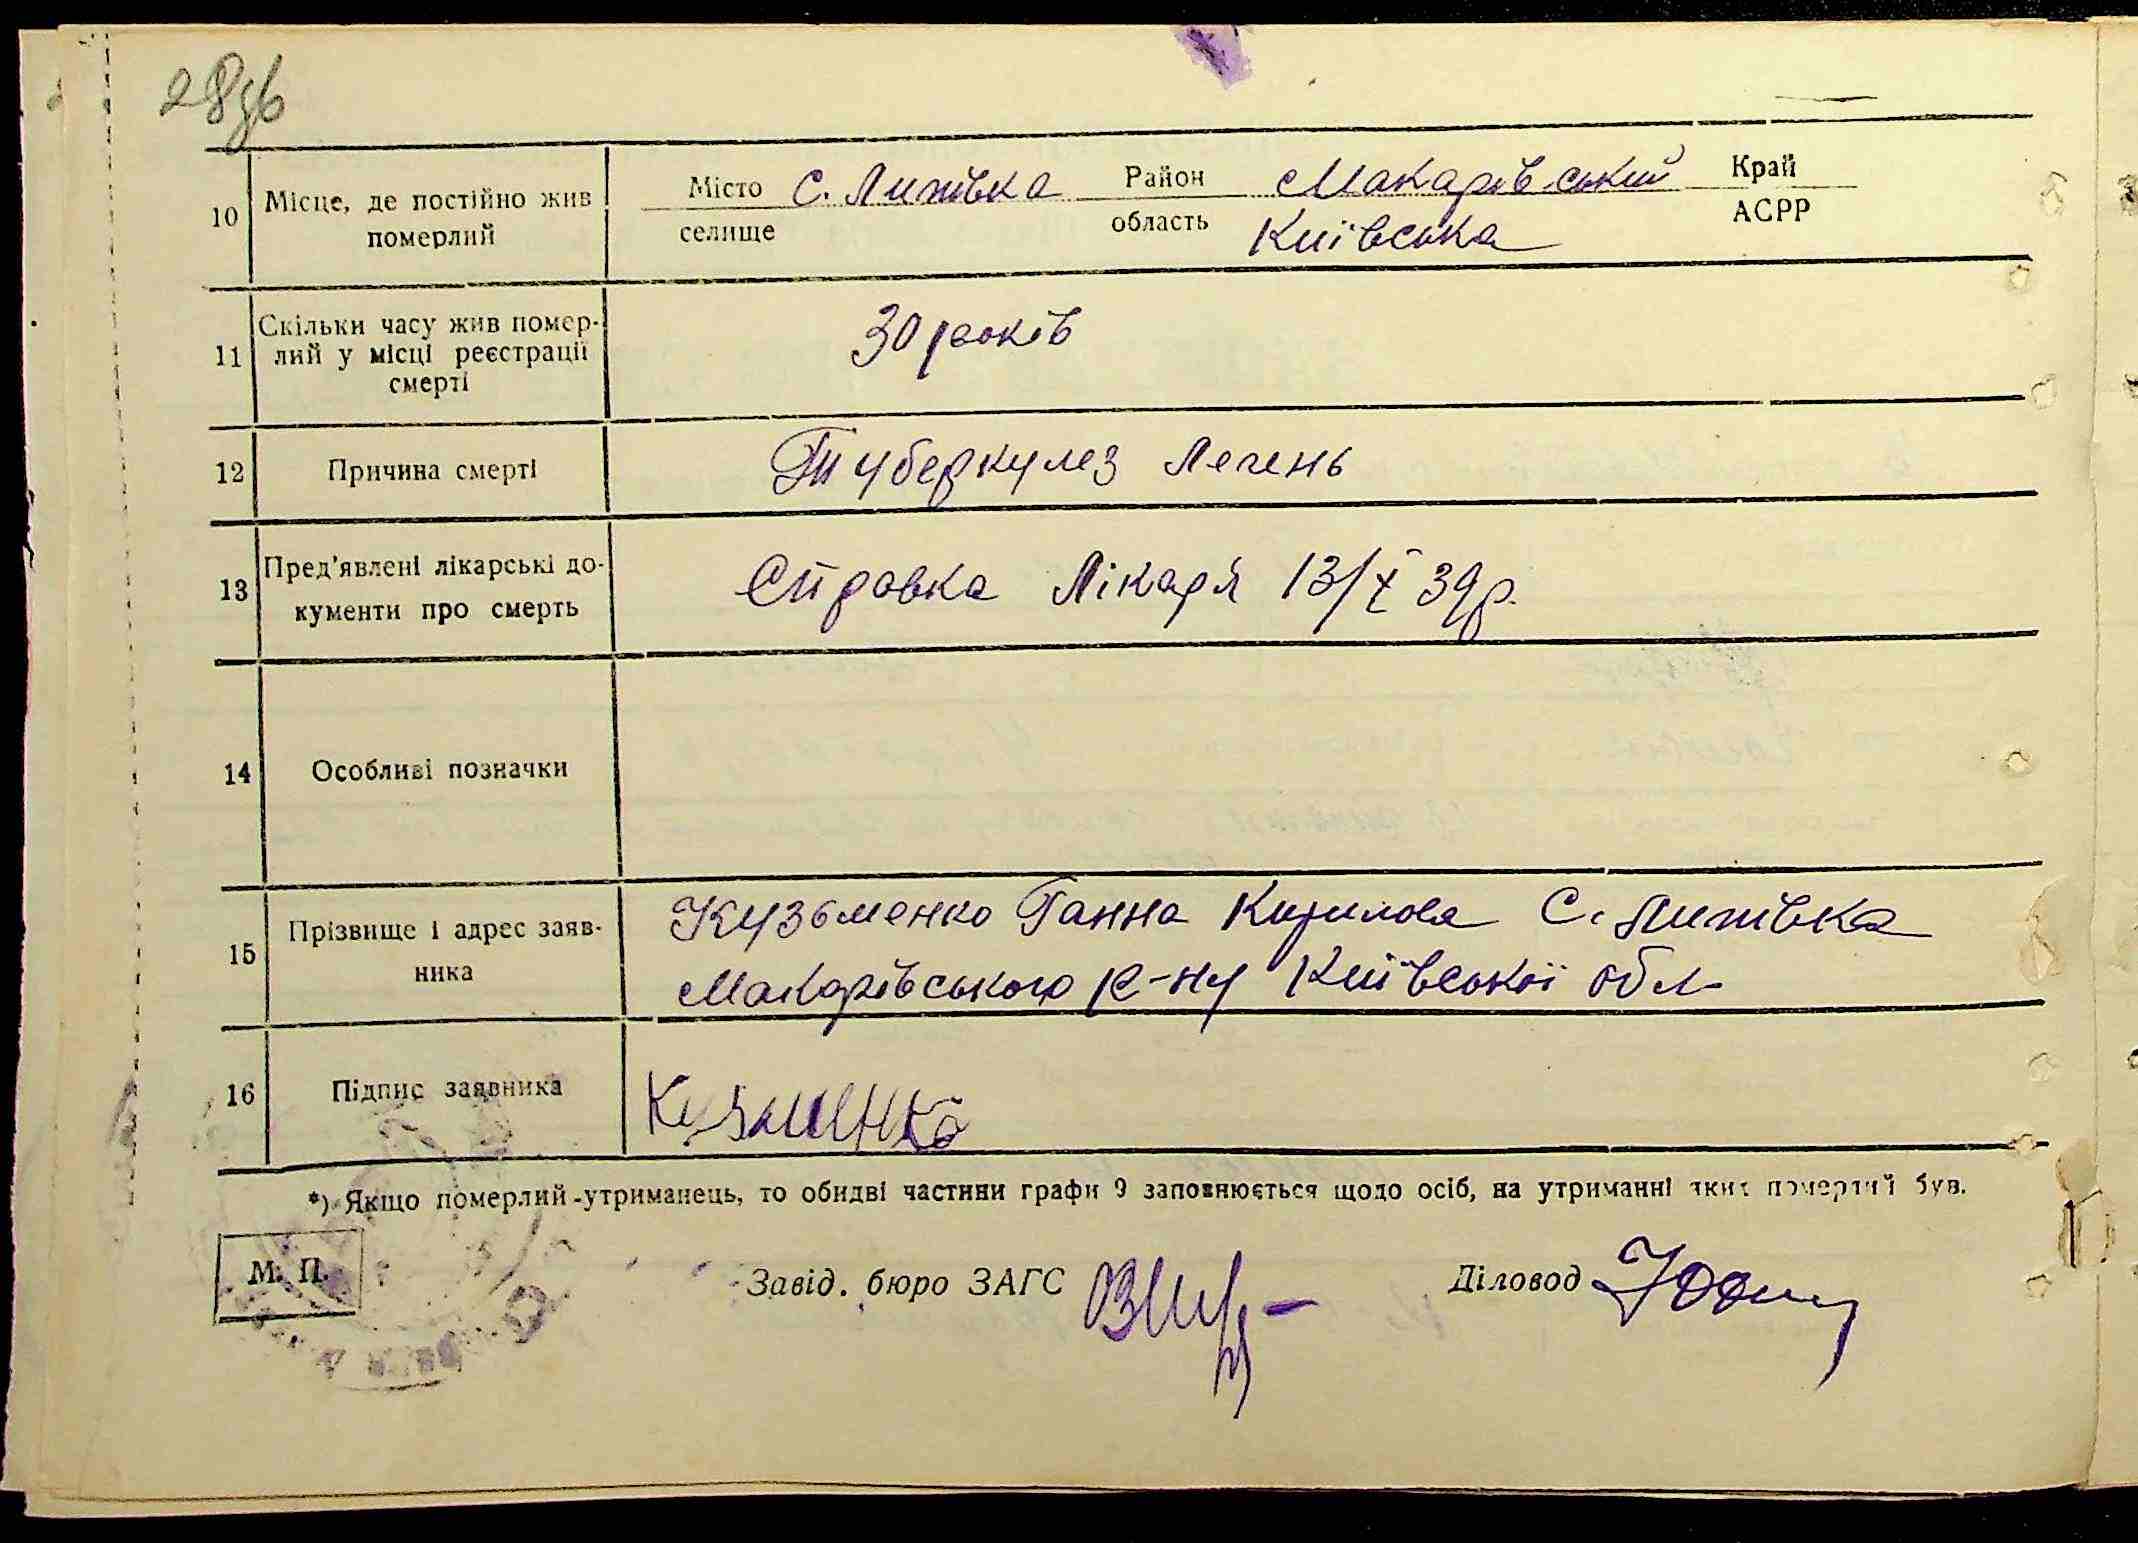 28зв
10 Місце, де постійно жив померлий
Місто с. Липівка Район Макарівський Край
селище область Київська АСРР
11 Скільки часу жив помер-
лий у місці реєстрації
смерті
30 років
12 Причина смерті Туберкулез Легень
13 Пред'явлені лікарські до-
кументи про смерть
Справка Лікаря 13/X 39р.
14 Особливі позначки
15 Прізвище і адрес заяв-
ника
Кузьменко Ганна Кирилова С. Липівка
Макарівського р-ну Київської обл.
16 Підпис заявника Кузменко
*) Якщо померлий-утриманець, то обидві частини графи 9 заповнюється щодо осіб, на утриманні яких померлий був.
М. П. Завід. бюро ЗАГС Діловод